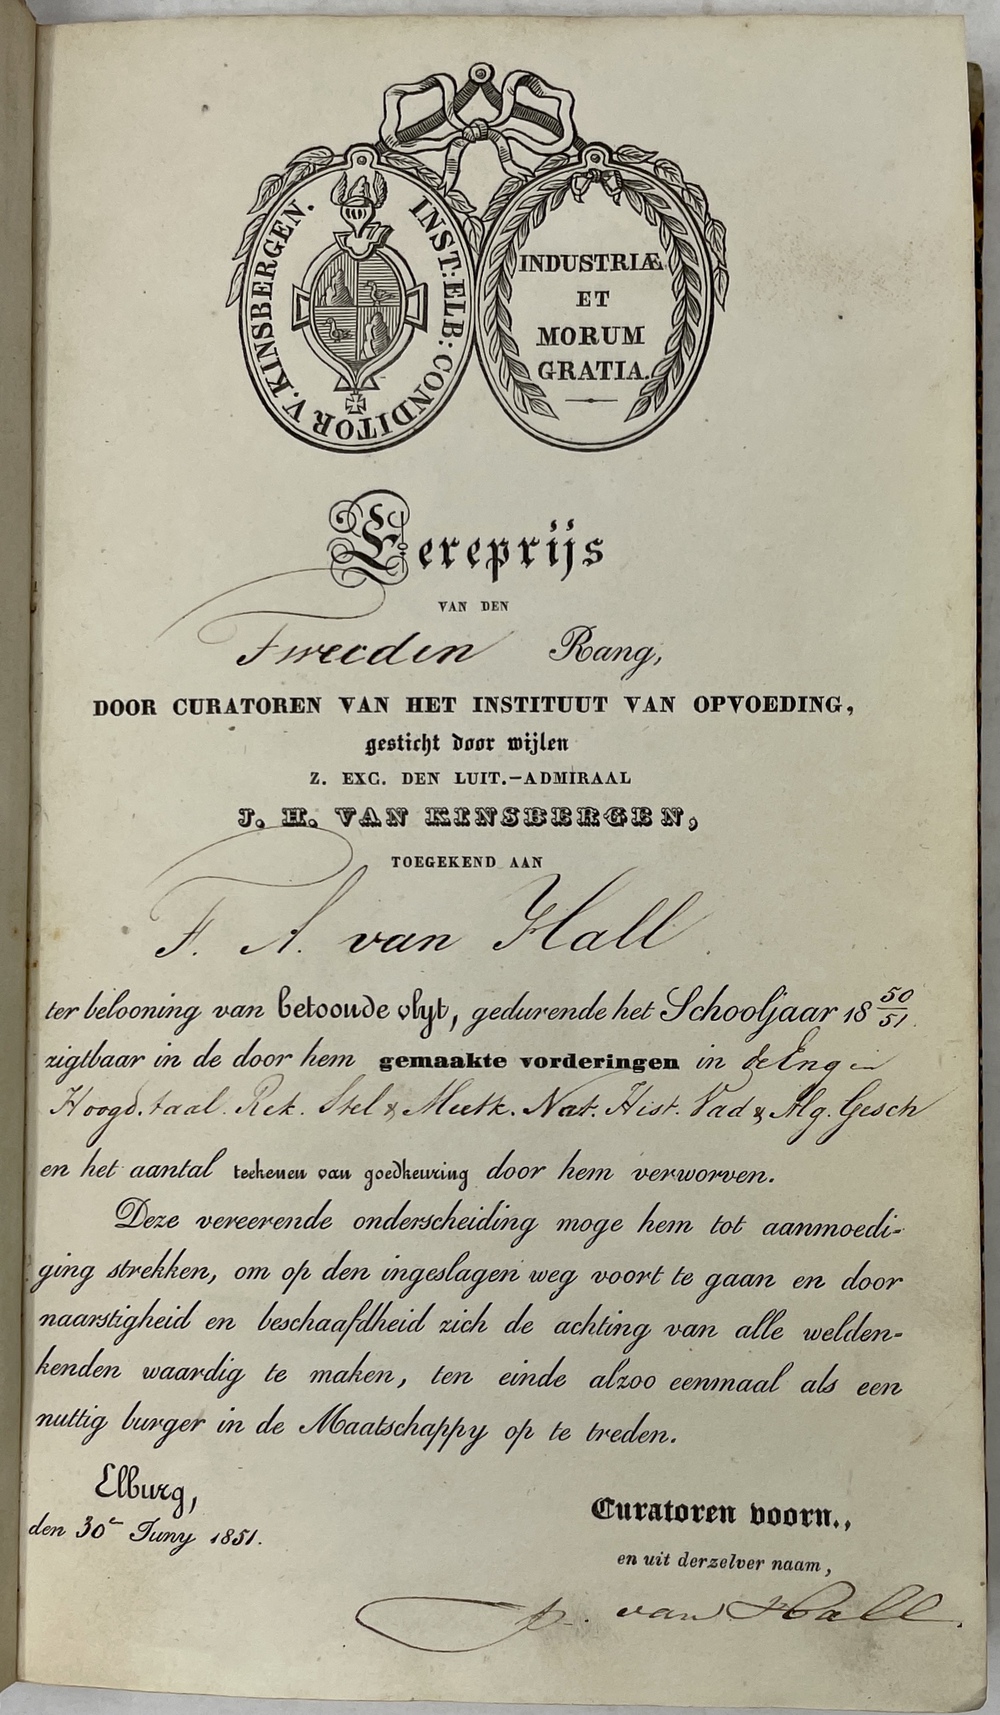 INST: ELB: CONDITOR V. KINSBERGEN.
INDUSTRIÆ
ET
MORUM
GRATIA.
Eereprijs
VAN DEN
Tweeden Rang,
DOOR CURATOREN VAN HET INSTITUUT VAN OPVOEDING,
gesticht door wijlen
Z. EXC. DEN LUIT.-ADMIRAAL
J. H. VAN KINSBERGEN,
TOEGEKEND AAN
F. A. van Hall
ter belooning van betoonde vlyt, gedurende het Schooljaar 18 50/51.
zigtbaar in de door hem gemaakte vorderingen in de Eng en
Hoogd. taal. Rek. Stel & Meetk. Nat. Hist. Vad & Alg. Gesch
en het aantal teekenen van goedkeuring door hem verworven.
Deze vereerende onderscheiding moge hem tot aanmoedi-
ging strekken, om op den ingeslagen weg voort te gaan en door
naarstigheid en beschaafdheid zich de achting van alle welden-
kenden waardig te maken, ten einde alzoo eenmaal als een
nuttig burger in de Maatschappy op te treden.
Elburg,
den 30e Juny 1851.
Curatoren voorn.,
en uit derzelver naam,
van Hall.